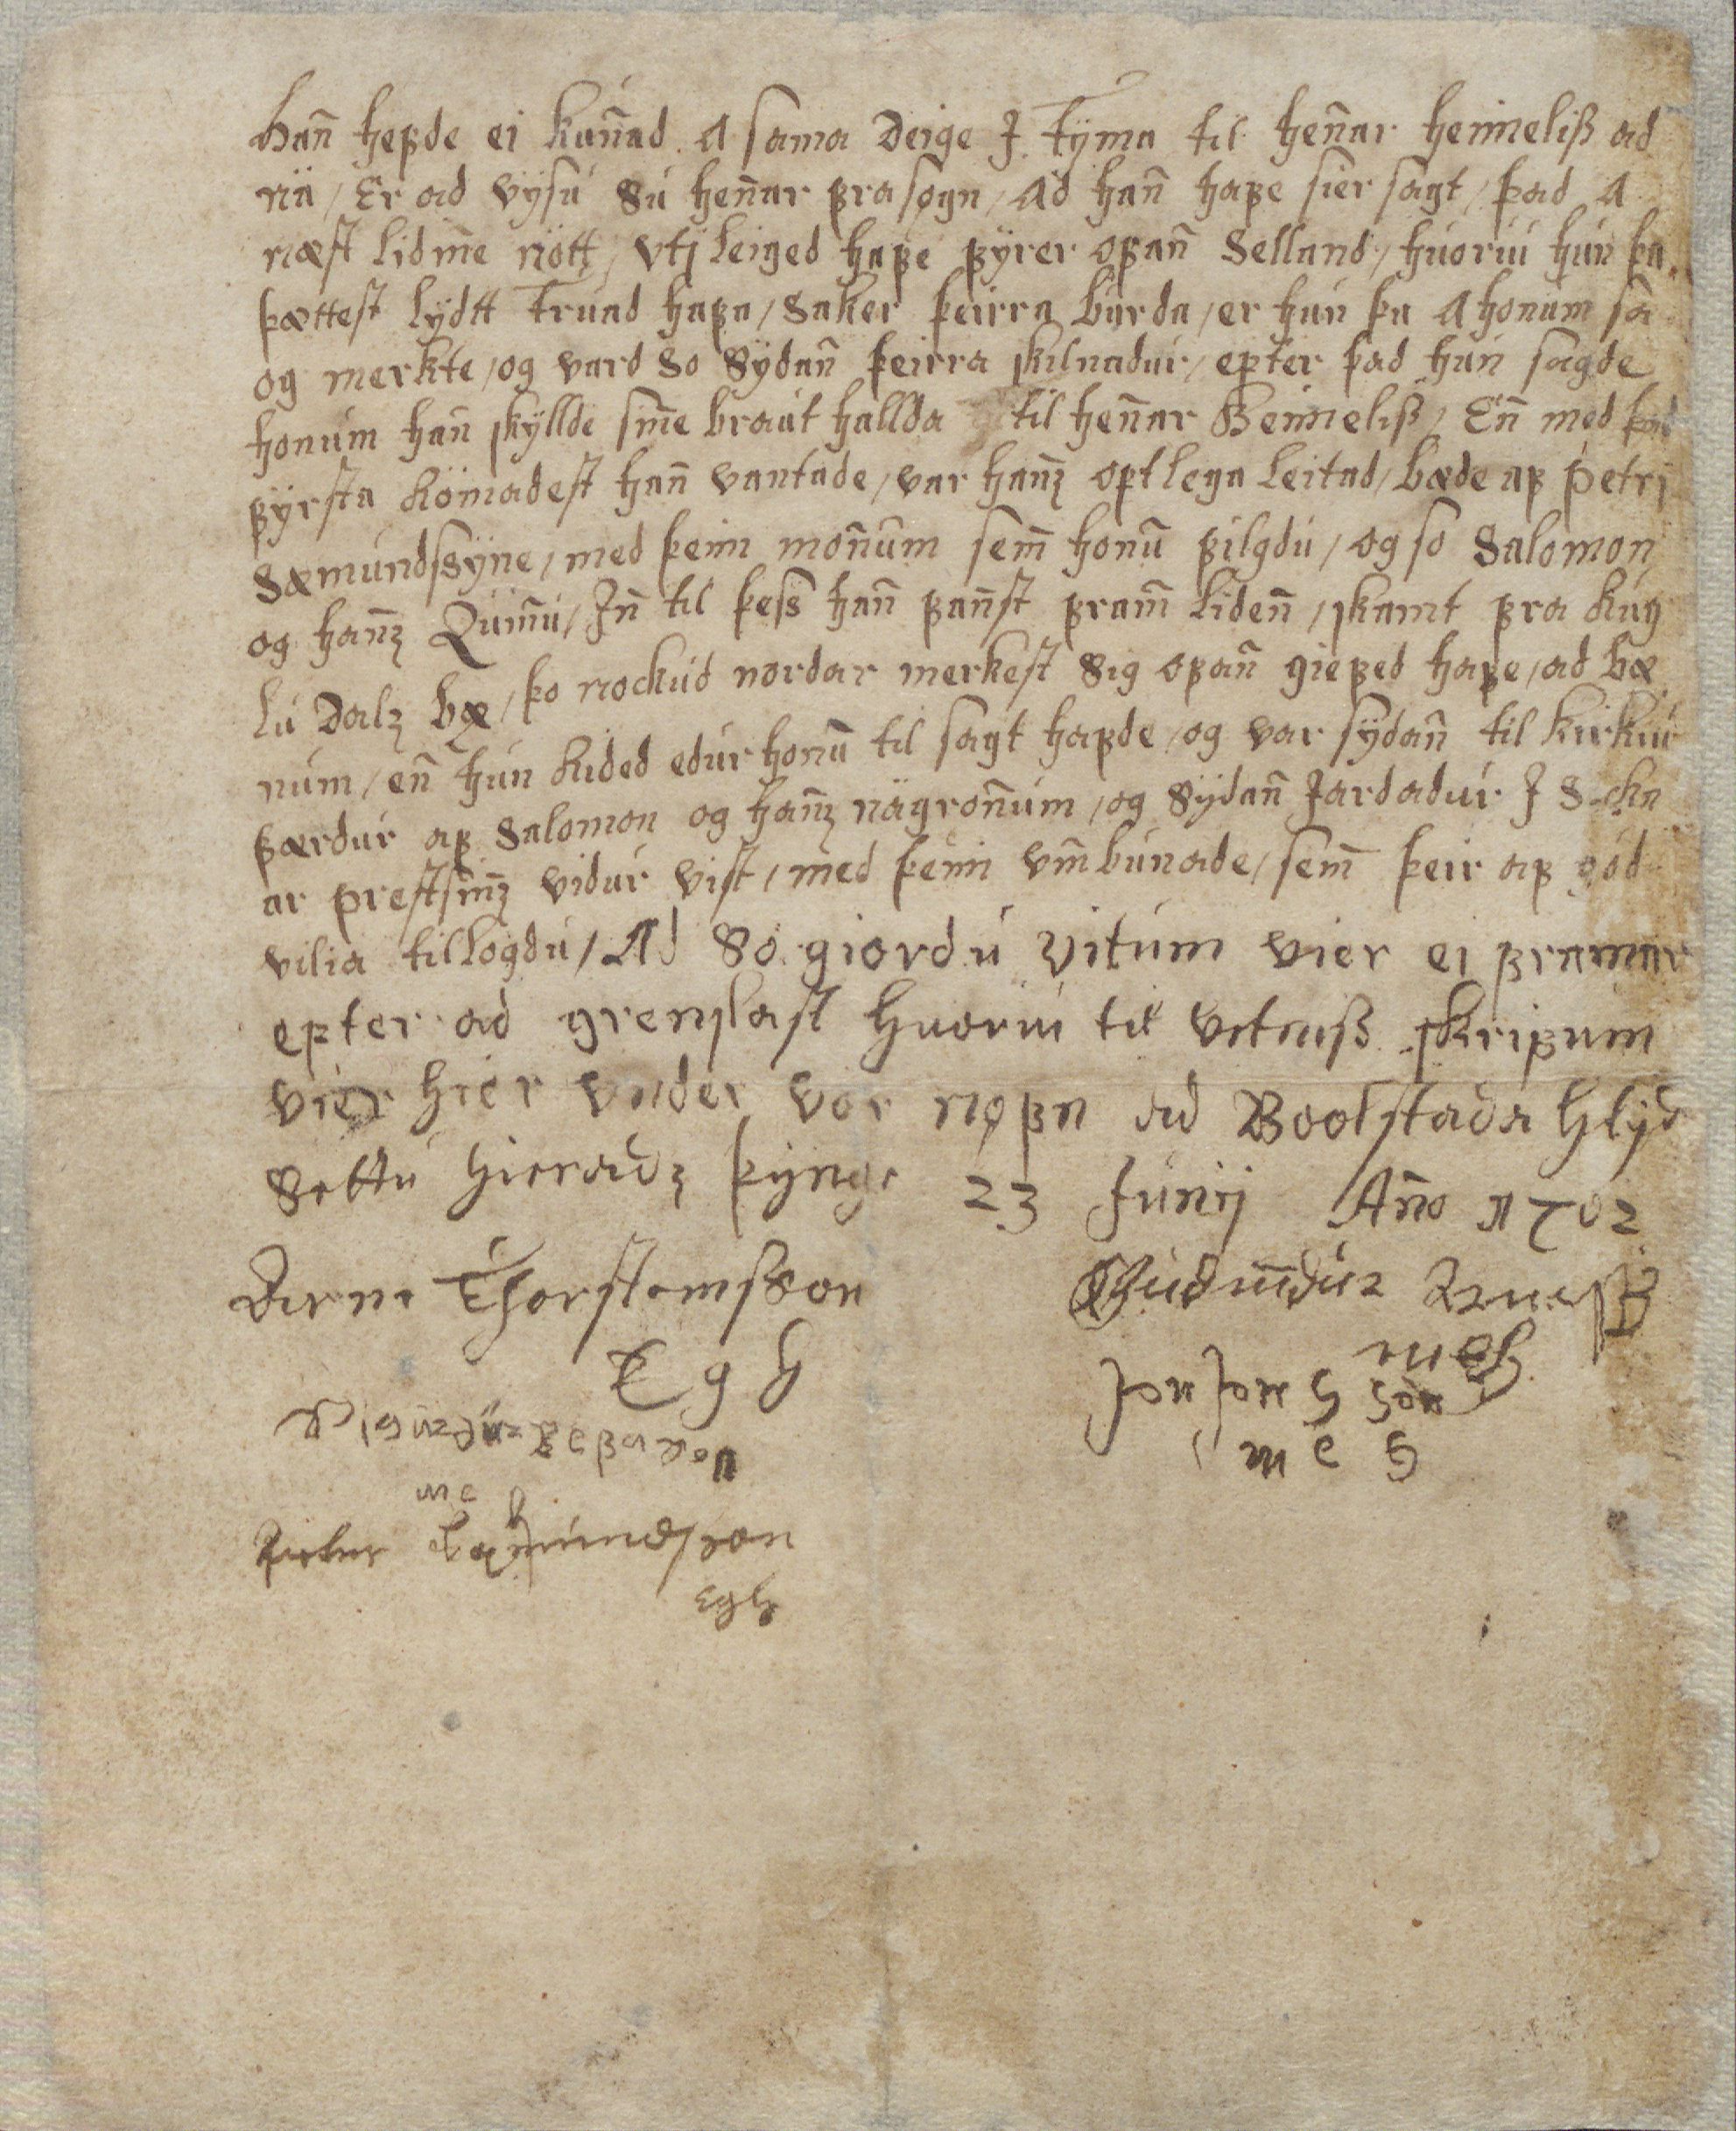 hann hefde ei kunnad A sama Deige J Tÿma til hennar heimeliß ad
nä / Er ad vÿsu Su hennar frasøgn / Ad hann hafe sier sagt / þad A
næst lidinne nött / vtj leiged hafe fÿrer ofann Selland / huoriu hun þa
þættest lÿdtt Truad hafa / Saker þeirra burda / er hun þa A honum sa
og merkte / og vard So Sÿdann þeirra skilnadur / epter þad hun sagde
honum hann skÿllde sinne braut hallda til hennar Heimeliß / Enn med þad
fÿrsta kömadest hann vantade / var hannz optlega leitad / bæde af Petrj
Sæmundssÿne / med þeim monnum semm honum filgdu / og so Salomon
og hannz Quinnu / Jnn til þess hann fannst framm lidenn / skamt fra kug
lu Dalz bæ / þo nockud nordar merkest Sig ofann giefed hafe / ad bæ
num / enn hun lided edur honum til sagt hafde / og var sÿdann til kirkiu
færdur af Salomon og hannz nägronnum / og Sÿdann Jardadur J
ar prestsinnz vidur vist / med þeim vmbunade / semm þeir af god
vilia tillogdu / Ad So giordu vitum vier ei framar
epter ad grenslast huoriu til vitnuß skrifum
vier hier vnder vor nøfn ad Boolstada hlÿd
Settu hieradz þÿnge 23 Junij Anno 1702
Arne Thorsteinsson Gudmundur
E g h
meh
m e h
Petur Sæmundsson
Egh